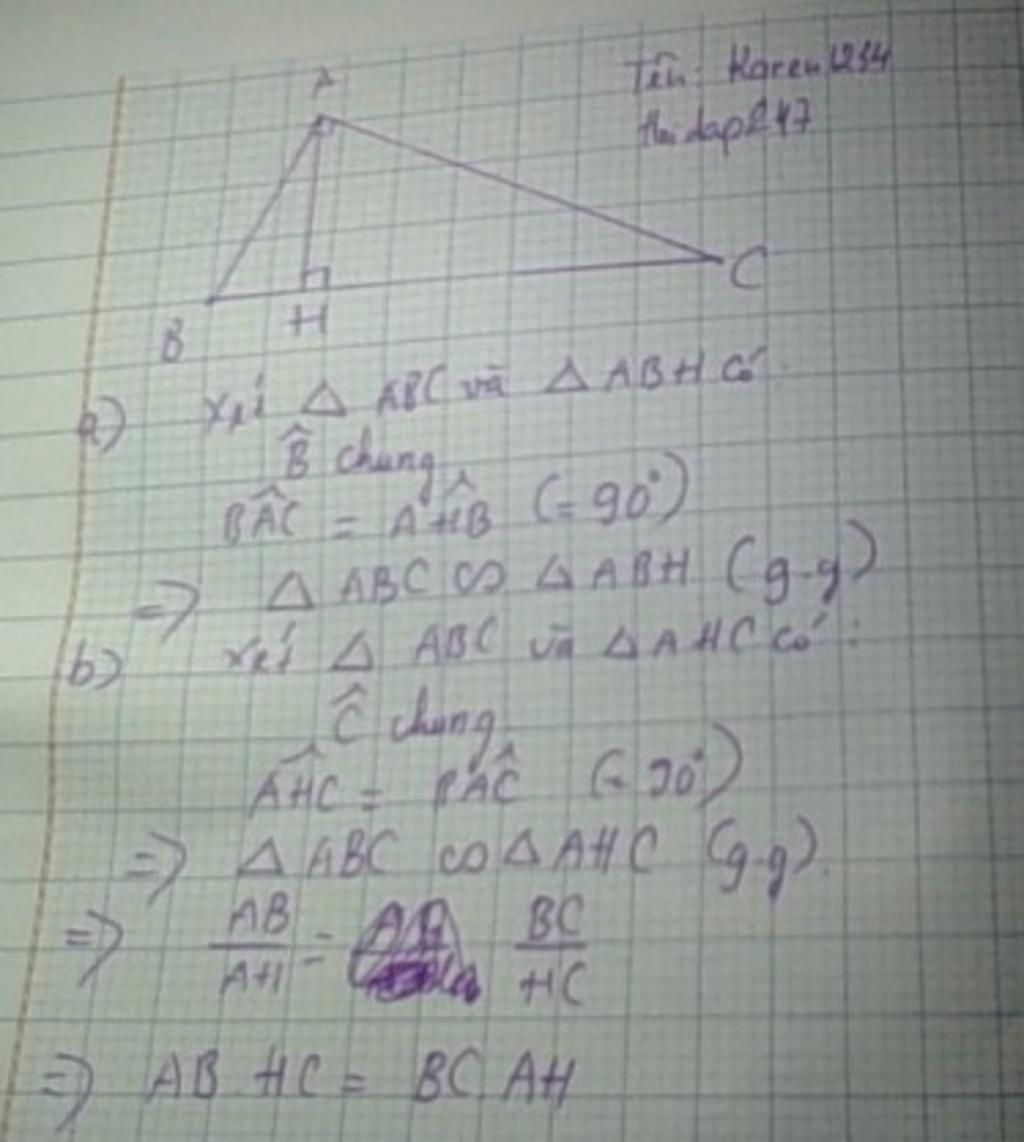 A
Tên: Karen1234
Hoidap247
C
B
H
a) Xét △ ABC và △ ABH có
B̂ chung
BÂC = AĤB (= 90°)
=> △ ABC ∽ △ ABH (g-g)
b) Xét △ ABC và △ AHC có :
Ĉ chung
AĤC = BÂC (= 90°)
=> △ ABC ∽ △ AHC (g.g).
=> AB/AH = BC/HC
=> AB HC = BC AH